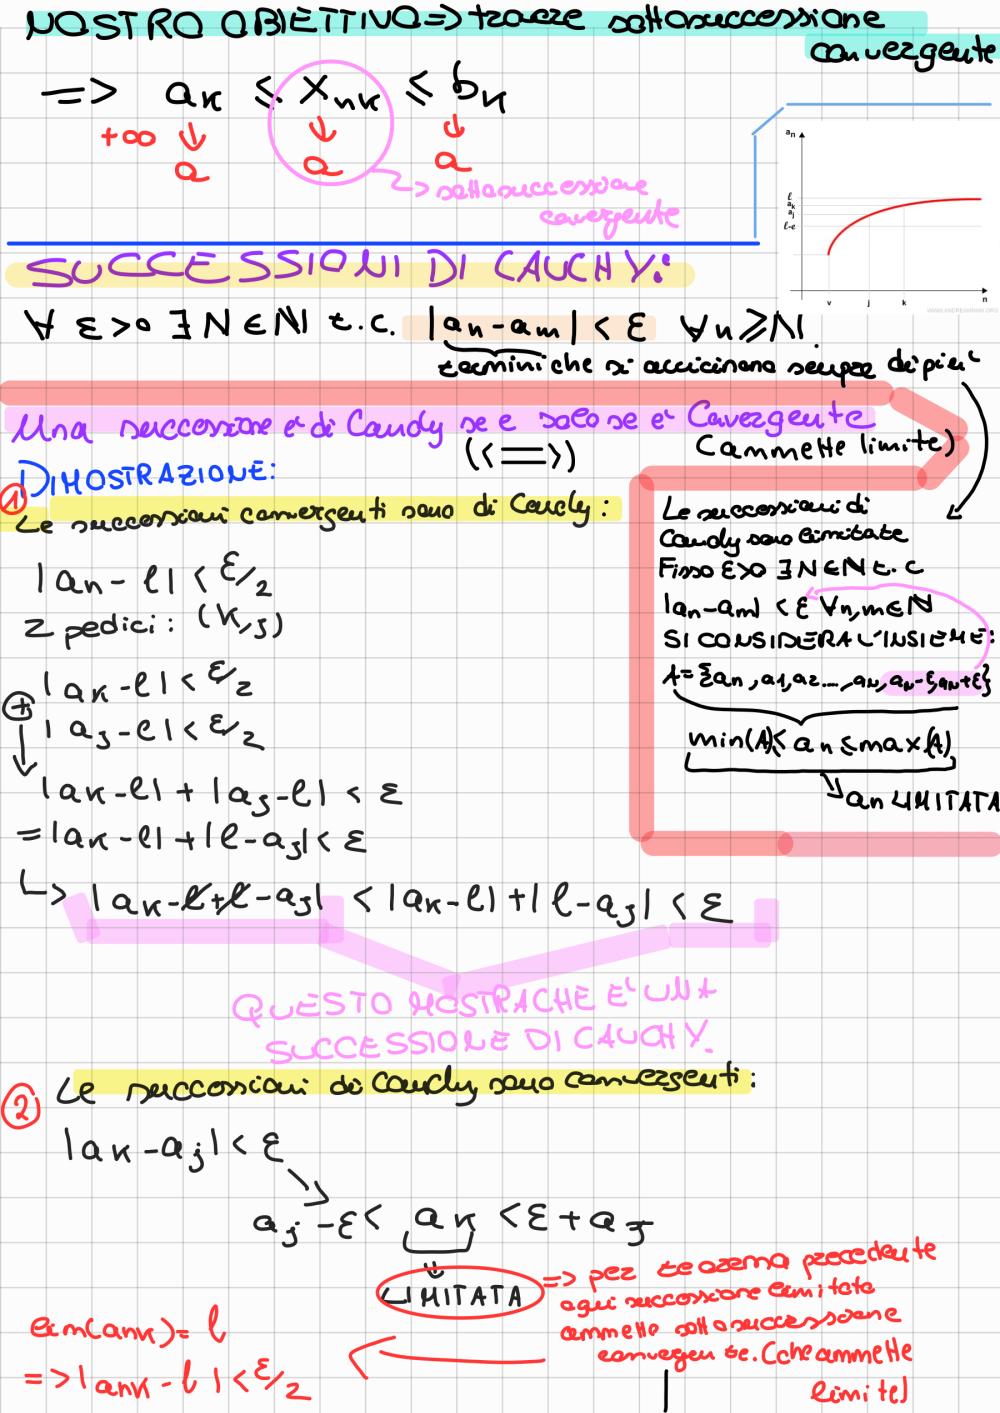 NOSTRO OBIETTIVO => trarre sottosuccessione
convergente
=> aₖ ≤ xₙₖ ≤ bₖ
+∞ ↓ ↓ ↓
a a a
-> sottosuccessione
convergente
aₙ
ℓ
aₖ
aⱼ
ℓ-ε
v j k n
SUCCESSIONI DI CAUCHY:
∀ ε>0 ∃ N ∈ ℕ t.c. |aₙ-aₘ| < ε ∀n ≥ N.
termini che si avvicinano sempre di più
Una successione è di Caucly se e solo se è Convergente
(<=>) (ammette limite)
DIMOSTRAZIONE:
① Le successioni convergenti sono di Caucly:
|aₙ - ℓ| < ε/2
2 pedici: (k,j)
|aₖ-ℓ| < ε/2
⊕ |aⱼ-ℓ| < ε/2
↓ |aₖ-ℓ| + |aⱼ-ℓ| < ε
= |aₖ-ℓ| + |ℓ-aⱼ| < ε
↳ |aₖ-ℓ+ℓ-aⱼ| < |aₖ-ℓ| + |ℓ-aⱼ| < ε
Le successioni di
Caucly sono limitate
Fisso ε>0 ∃ N ∈ N t.c
|aₙ-aₘ| < ε ∀n,m ∈ N
SI CONSIDERA L'INSIEME:
A={aₙ, a₁, a₂..., aₙ, a_N-ε, a_N+ε}
min(A) ≤ aₙ ≤ max(A)
↳ aₙ LIMITATA
QUESTO MOSTRA CHE E' UNA
SUCCESSIONE DI CAUCHY.
② Le successioni di Caucly sono convergenti:
|aₖ-aⱼ| < ε
aⱼ-ε < aₖ < ε+aⱼ
LIMITATA => per teorema precedente
ogni successione limitata
ammette sottosuccessione
convergente. (che ammette
limite)
lim(aₙₖ) = ℓ
=> |aₙₖ - ℓ| < ε/2